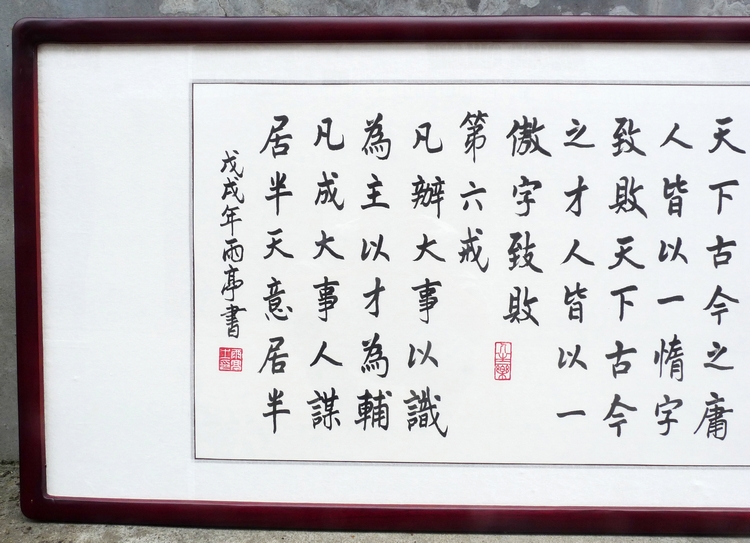 天下古今之庸
人皆以一惰字
致敗天下古今
之才人皆以一
傲字致敗
第六戒
凡辦大事以識
為主以才為輔
凡成大事人謀
居半天意居半
戊戌年雨亭書